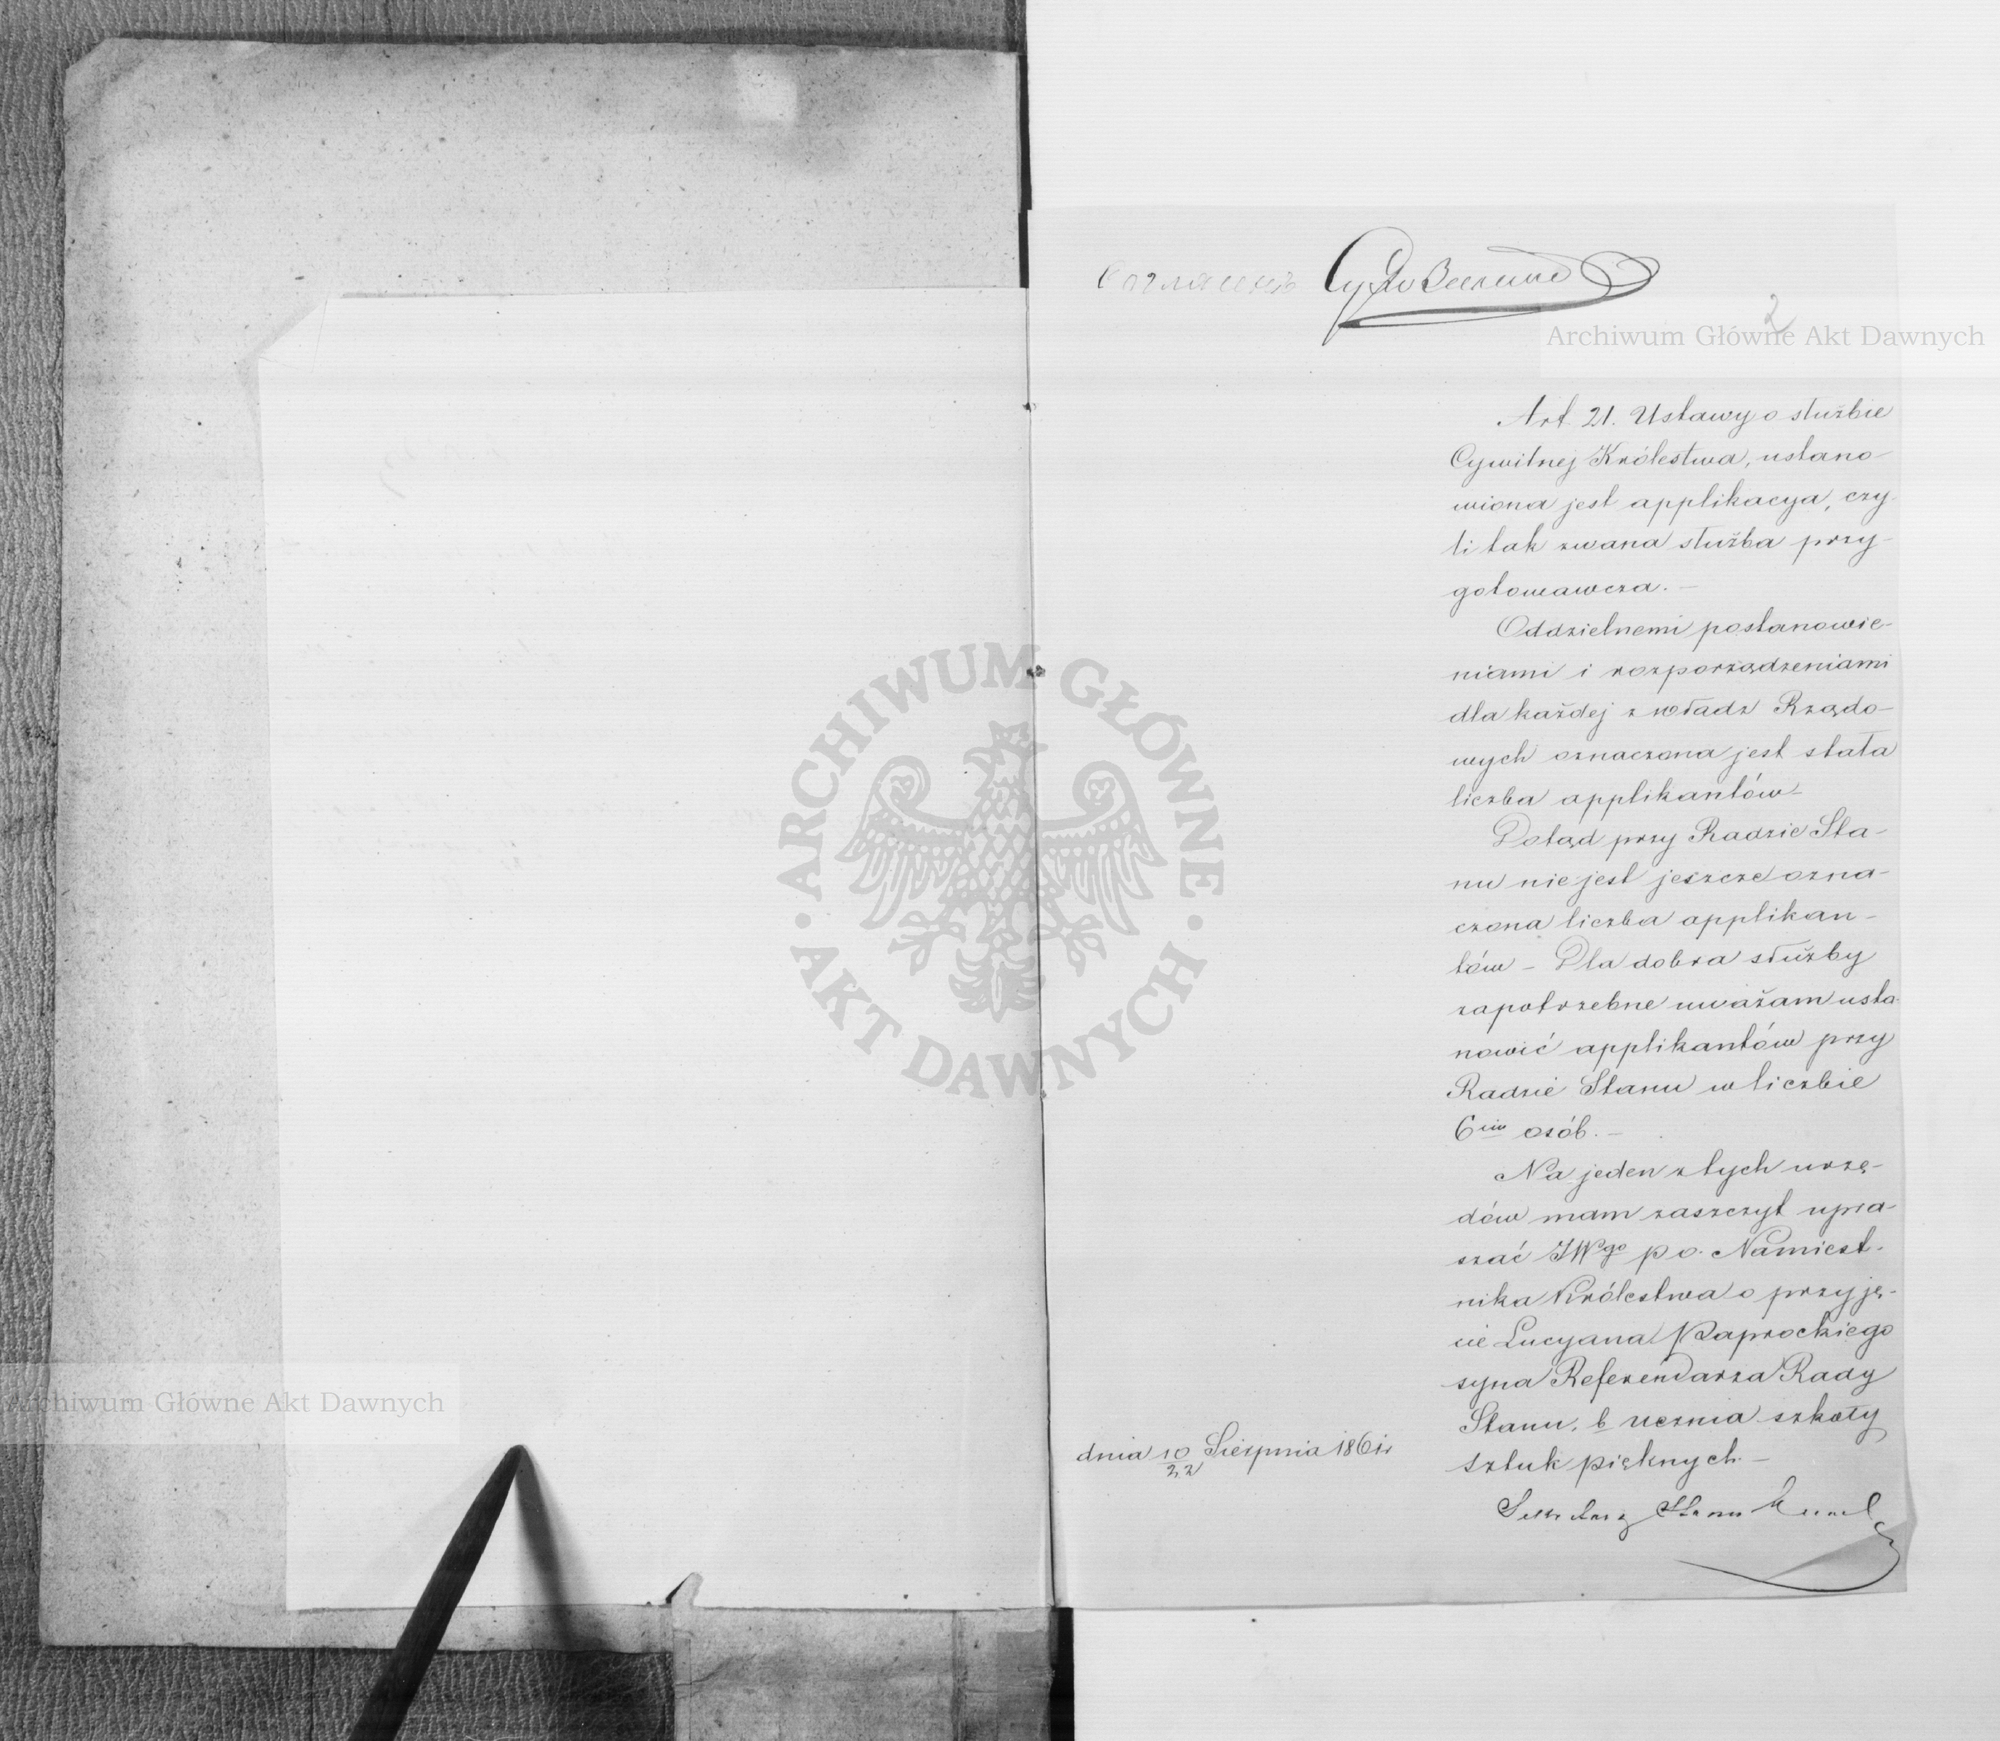 Согласенъ
2
Art 21. Ustawy o służbie
Cywilnej Królestwa, ustano-
wiona jest applikacya, czy-
li tak zwana służba przy-
gotowawcza. –
Oddzielnemi postanowie-
niami i rozporządzeniami
dla każdej z władz Rządo-
wych oznaczona jest stała
liczba applikantów –
Dotąd przy Radzie Sta-
nu nie jest jeszcze ozna-
czona liczba applikan-
tów – Dla dobra służby
zapotrzebne uważam usta-
nowić applikantów przy
Radzie Stanu w liczbie
6ciu osób. –
Na jeden z tych urzę-
dów mam zaszczyt upra-
szać JWgo p o. Namiest-
nika Królestwa o przyję-
cie Lucyana Paprockiego
syna Referendarza Rady
Stanu, b ucznia szkoły
sztuk pięknych –
dnia 10/22 Sierpnia 1861 r
Sekretarz Stanu
Archiwum Główne Akt Dawnych
ARCHIWUM GŁÓWNE · AKT DAWNYCH ·
Archiwum Główne Akt Dawnych